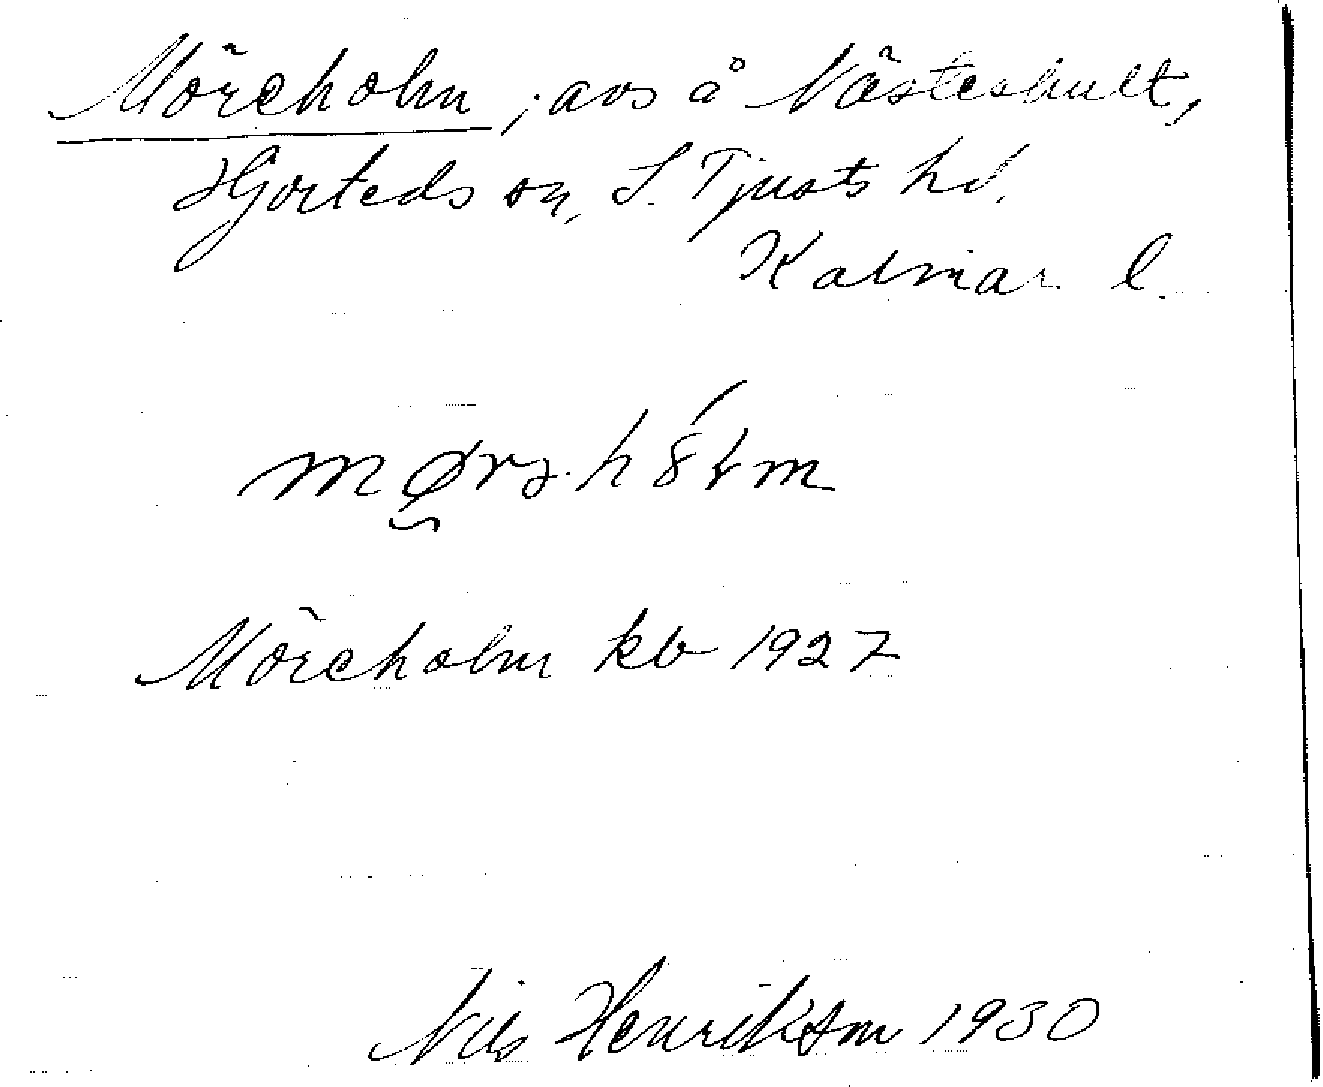 Möreholm, avs å Nästeshult,
Hjorteds sn, S. Tjusts hd.
Kalmar l.
Möreholm kb 1927
Nils Henrikson 1930